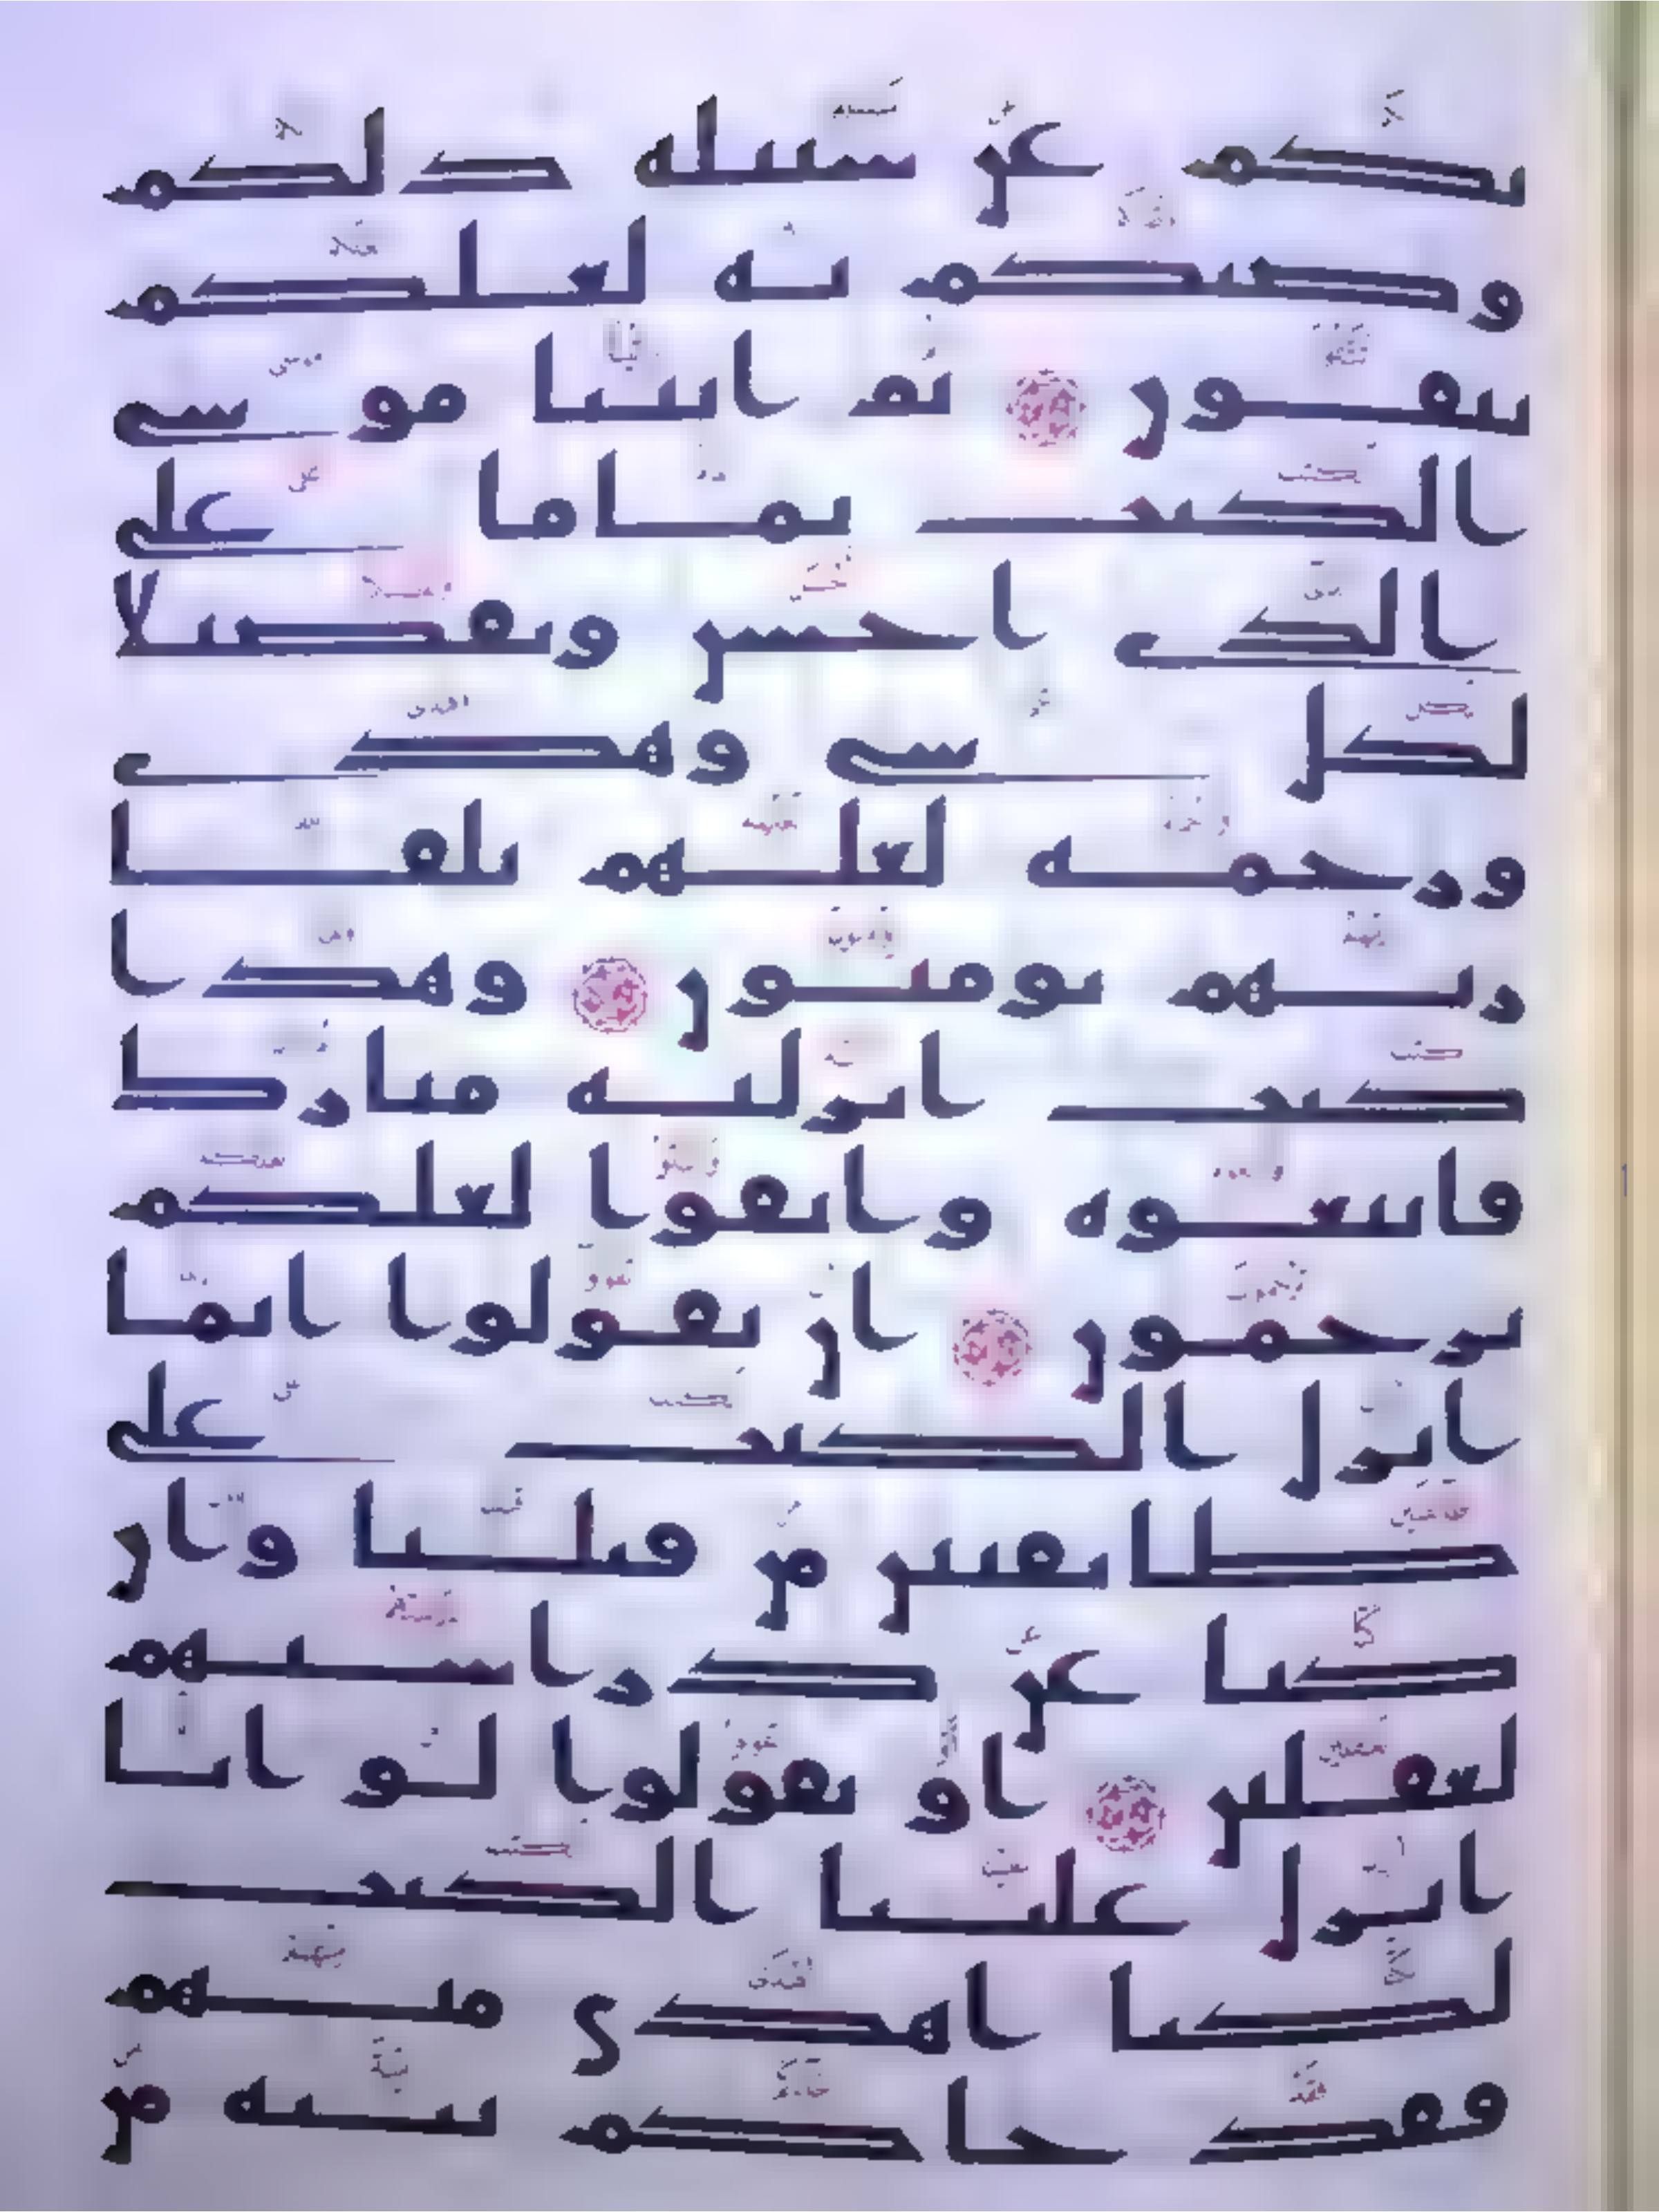 بكم عن سبيله ذلكم
وصىكم به لعلكم
تتقون ثم اتينا موسى
الكتب تماما على
الذى احسن وتفصيلا
لكل شى وهدى
ورحمة لعلهم بلقا
ربهم يومنون وهذا
كتب انزلنه مبارك
فاتبعوه واتقوا لعلكم
ترحمون ان تقولوا انما
انزل الكتب على
طايفتين من قبلنا وان
كنا عن دراستهم
لغفلين او تقولوا لو انا
انزل علينا الكتب
لكنا اهدى منهم
فقد جاكم بينة من